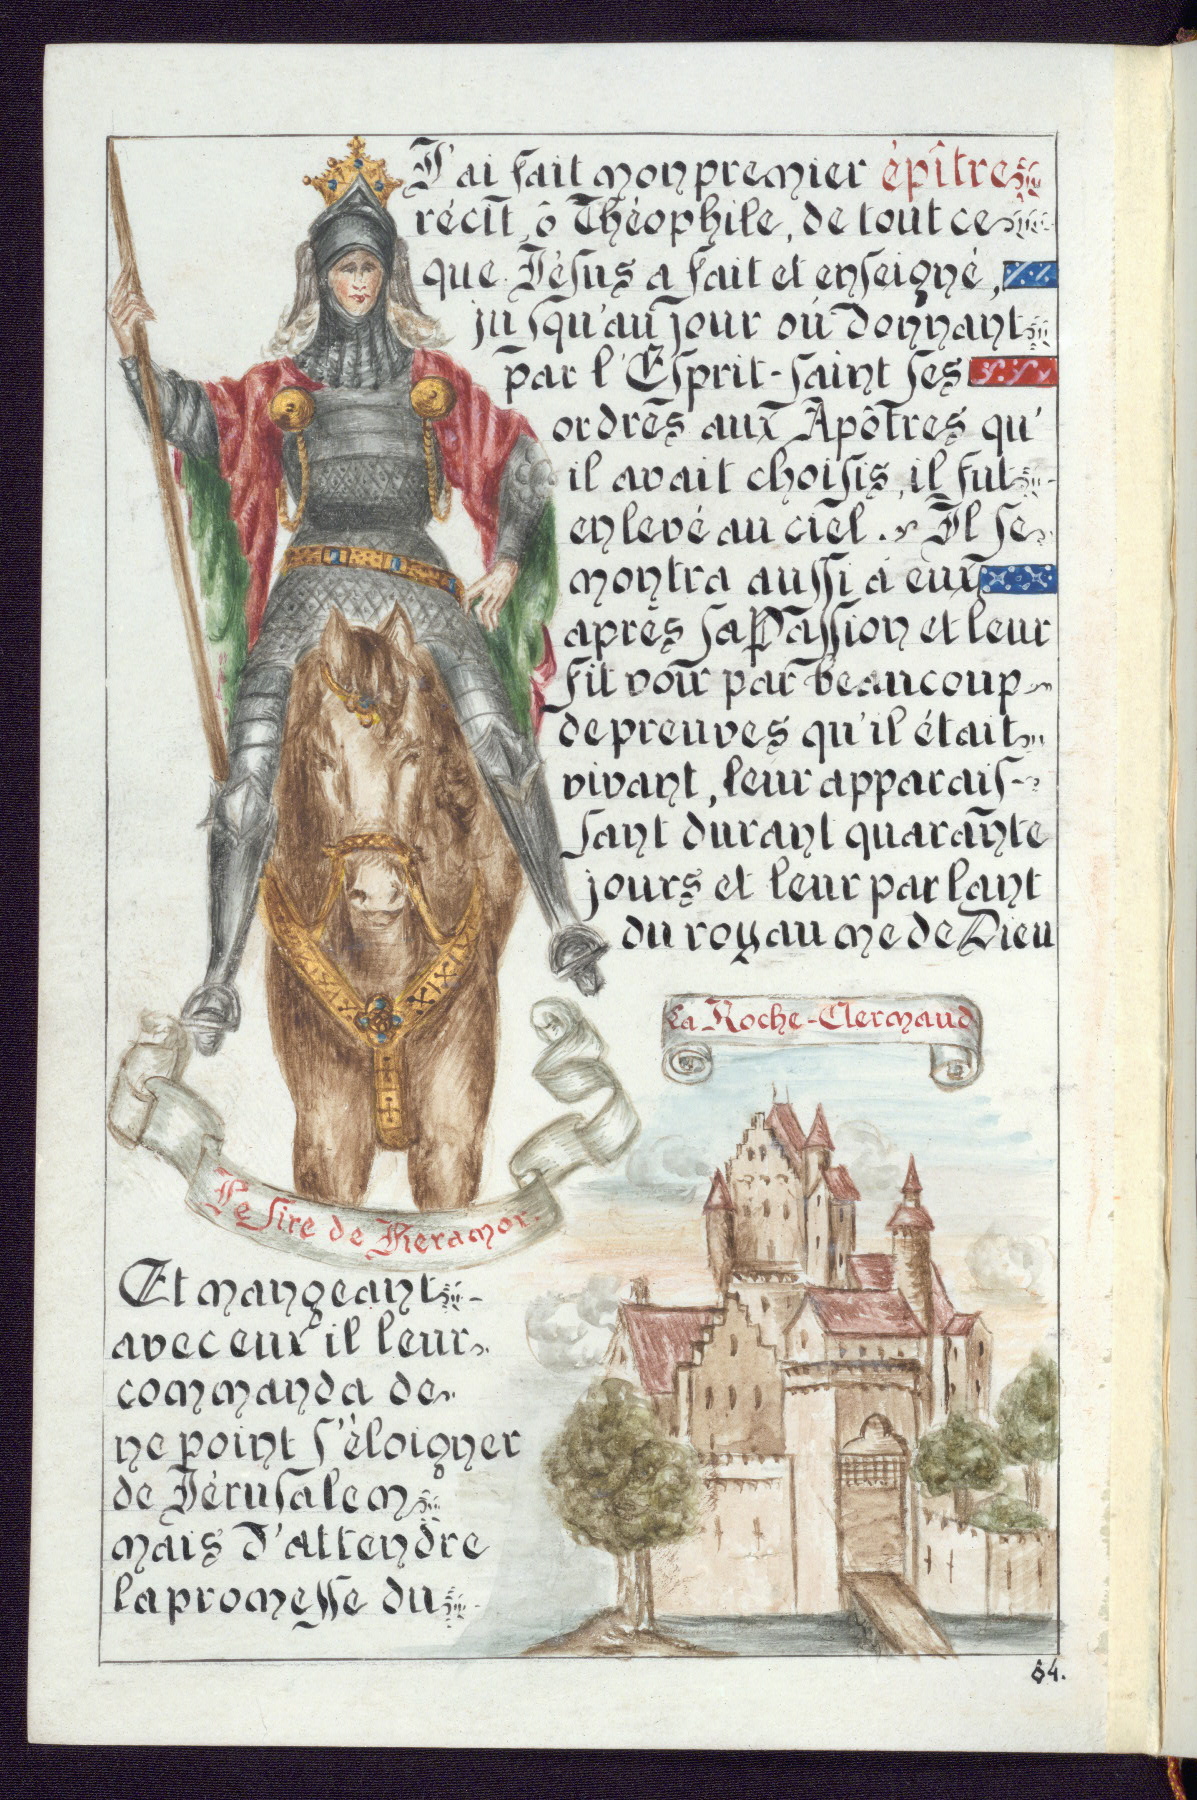 J'ai fait mon premier épître
récit, ô Théophile, de tout ce
que Jésus a fait et enseigné,
jusqu'au jour où donnant
par l'Esprit-saint ses
ordres aux Apôtres qu'
il avait choisis, il fut
enlevé au ciel. Il se
montra aussi à eux
après sa Passion et leur
fit voir par beaucoup
de preuves qu'il était
vivant, leur apparais-
sant durant quarante
jours et leur parlant
du royaume de Dieu
La Roche-Clermaud
Le Sire de Fieramor.
Et mangeant
avec eux il leur
commanda de
ne point s'éloigner
de Jérusalem
mais d'attendre
la promesse du
64.